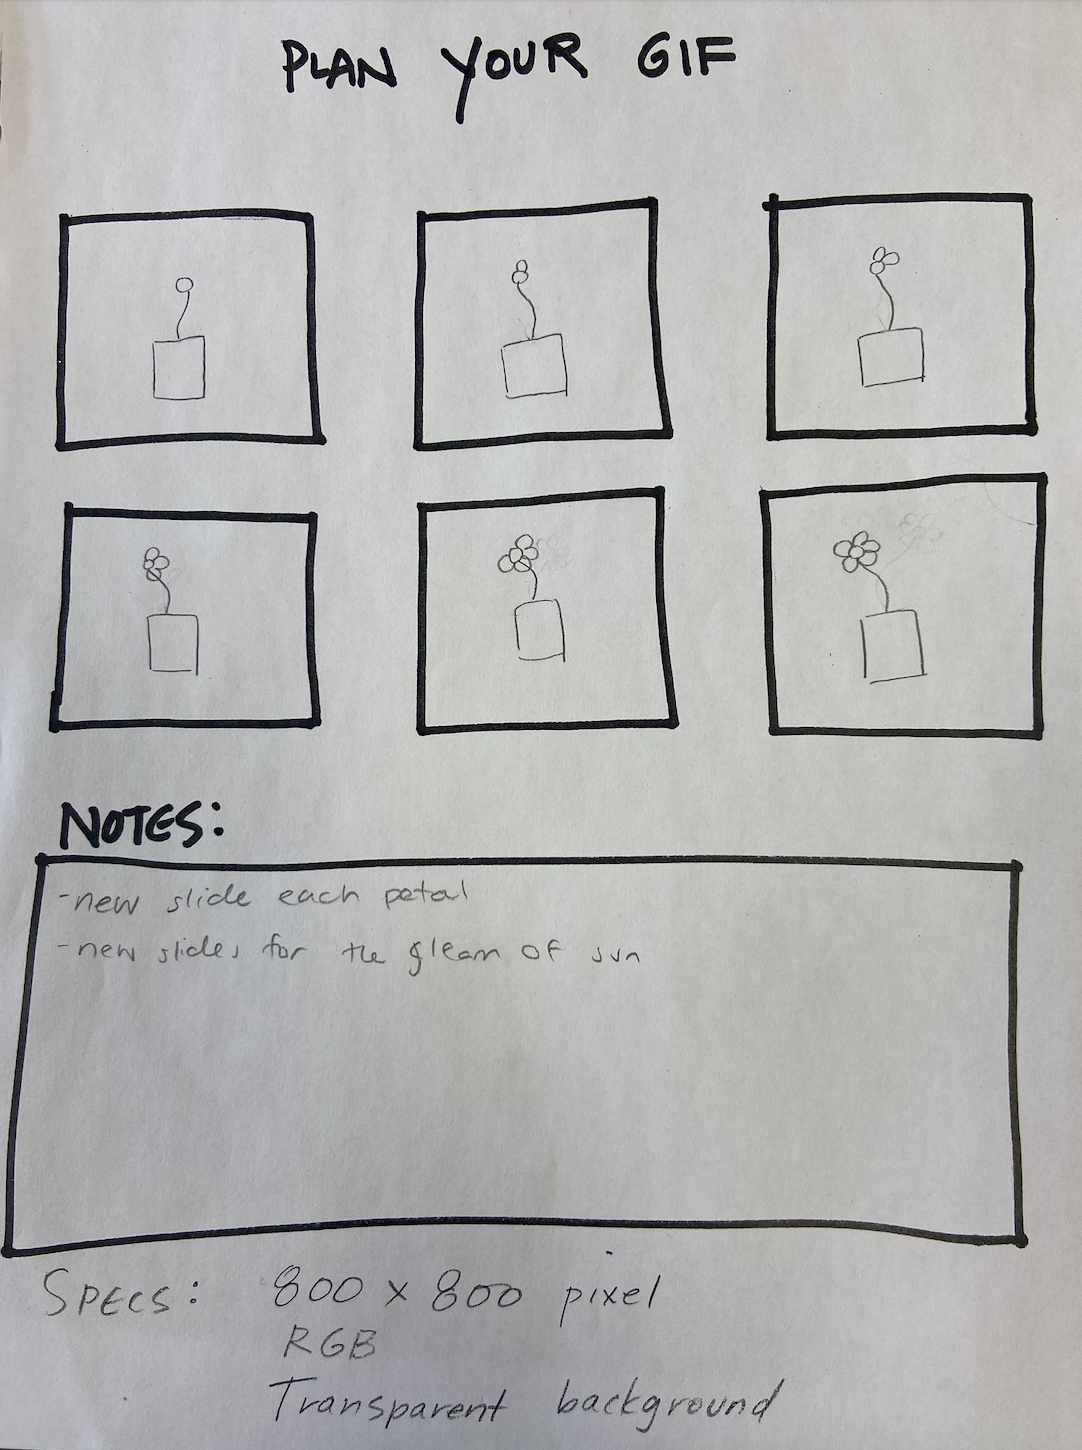 PLAN YOUR GIF
NOTES:
-new slide each petal
-new slides for the gleam of sun
SPECS: 800 x 800 pixel
RGB
Transparent background